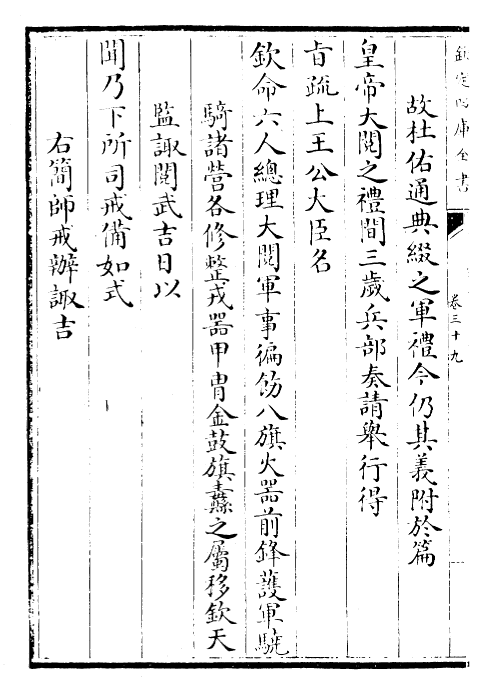 欽定四庫全書
卷三十九
故杜佑通典綴之軍禮今仍其義附於篇
皇帝大閱之禮間三歲兵部奏請舉行得
㫖疏上王公大臣名
欽命六人總理大閱軍事徧飭八旗火器前鋒護軍驍
騎諸營各修整戎器甲胄金鼓旗纛之屬移欽天
監諏閱武吉日以
聞乃下所司戒備如式
右簡師戒辦諏吉